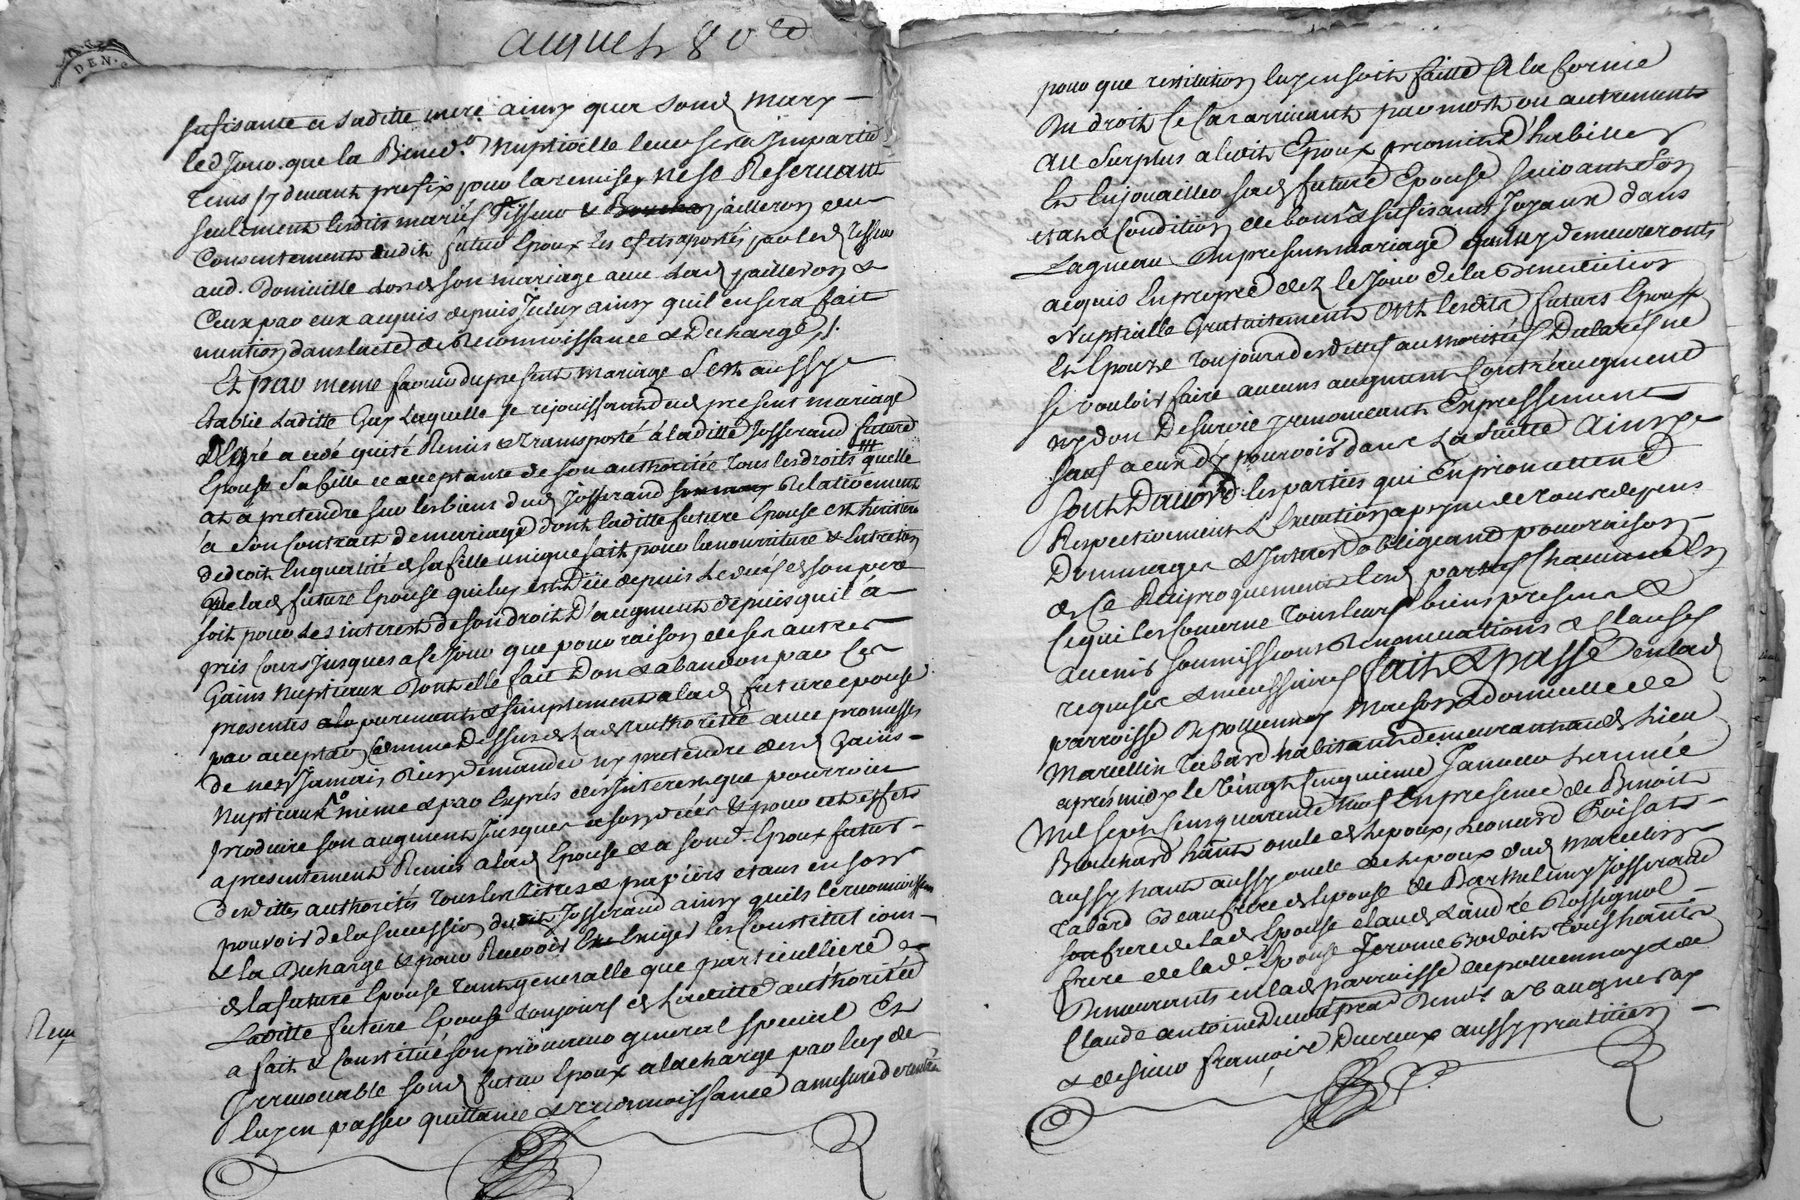 DEN.
sufisante a saditte mere ainsy qua soud mary
led Jour que la Bened.on Nuptialle leur sera Impartie
tems cy devant prefix pour la remise, ne se Reservant
seulement lesdits mariés Tisseur & jailleron du
Consentement dudit futur Epoux les effets aportés par led Tisseur
aud. Domicille lors de son mariage avec lad jailleron &
Ceux par eux acquis depuis Iceluy ainsy quil en sera fait
mention dans lacte de Reconnoissance & Decharge ./.
Et par meme faveur du present mariage s'est aussy
Etablie laditte Guy laquelle se rejouissant dud present mariage
de gré a cedé quité Remis & transporté à laditte Josserand future
Epouse sa fille ce acceptante de son authoritée tous les droits quelle
at a pretendre sur les biens dud Josserand Relativement
a son Contrat de mariage dont laditte future Epouse est heritiere
de droit en qualité de sa fille unique fait pour la nourriture & Entretien
de lad future Epouse quiluy est Düe depuis le decés de son pere
soit pour les interest de son droit D'augment depuis quil à
pris Cours Jusques a ce Jour que pour raison de ses autres
Gains Nuptiaux dont elle fait Don & abandon par ces
presentes purement & simplement a lad future epouse
par acceptan Comme Dessus de lad authoritée avec promesses
de ney Jamais Rien demander ny pretendre desd Gains
Nuptiaux meme & par Exprés des Interest que pourroit
produire son augment Jusques a son decés & pour cet effet
a presentement Remis a lad Epouse & a soud. Epoux futur
desdittes authorités tous les titres & papiers etans en son
pouvoir de la sucession dudit Josserand ainsy quils le reconnoissent
& la Decharge & pour Recevoir Exiger les Constitut ions
de la future Epouse tant generalle que particulliere
Laditte future Epouse toujours de laditte authoritée
a fait & Constitué son procureur general special et
Irrevocable soud futur Epoux a la charge par luy de
luy en passer quittance & reconnoissance a mesure de
pour que restitution luy en soit faitte a la forme
du droit le Cas arrivant par mort ou autrement
au surplus aledit Epoux promis d'habiller
et Enjouailler sad future Epouse suivant son
etat & Condition de bons & sufisants Joyaux dans
Lagneau du present mariage quiluy demeureronts
acquis En propre déz le Jour de la Benediction
Nuptialle Gratuitement ont lesdits futurs Epoux
et Epouze toujours desdittes authoritées Declarés ne
se vouloir faire aucuns augment Contréaugment
ny don De survie y renonceant Expressement
sauf a eux dy pourvoir dans La suitte Ainsy
sont Daccord les parties qui En promettent
Respectivement L'Execution a peyne de tous depens
Dommages & Interest obligeant pour raison
de Ce Reciproquement lesd parties Chacune En
Ce qui les Concerne tous leurs biens presens &
avenir soumissions Renonciations & Clauses
requises & necessaires fait & passé en lad
parroisse de pollionnay Maison & domicille de
Marcellin Tabard habitant demeurant aud Lieu
aprés midy le vingt Cinquieme Janvier L'année
Mil sept Cens quarente trois En presence de Benoit
Bouchard hant oncle de Lepoux, Leonard Poisat
aussy hant aussy oncle de Lepoux dud Marcellin
Tabard Beaufrere de lepouse de Barthelemy Josserand
son frere de lad Epouse de lad & andré Rossignol
frere de lad Epouse Jerome Bodoit tous hants
Demeurants en lad parroisse de pollionnay & de
Claude antoine Remis a Vaugneray
& de sieur françois Ducreux aussy praticien